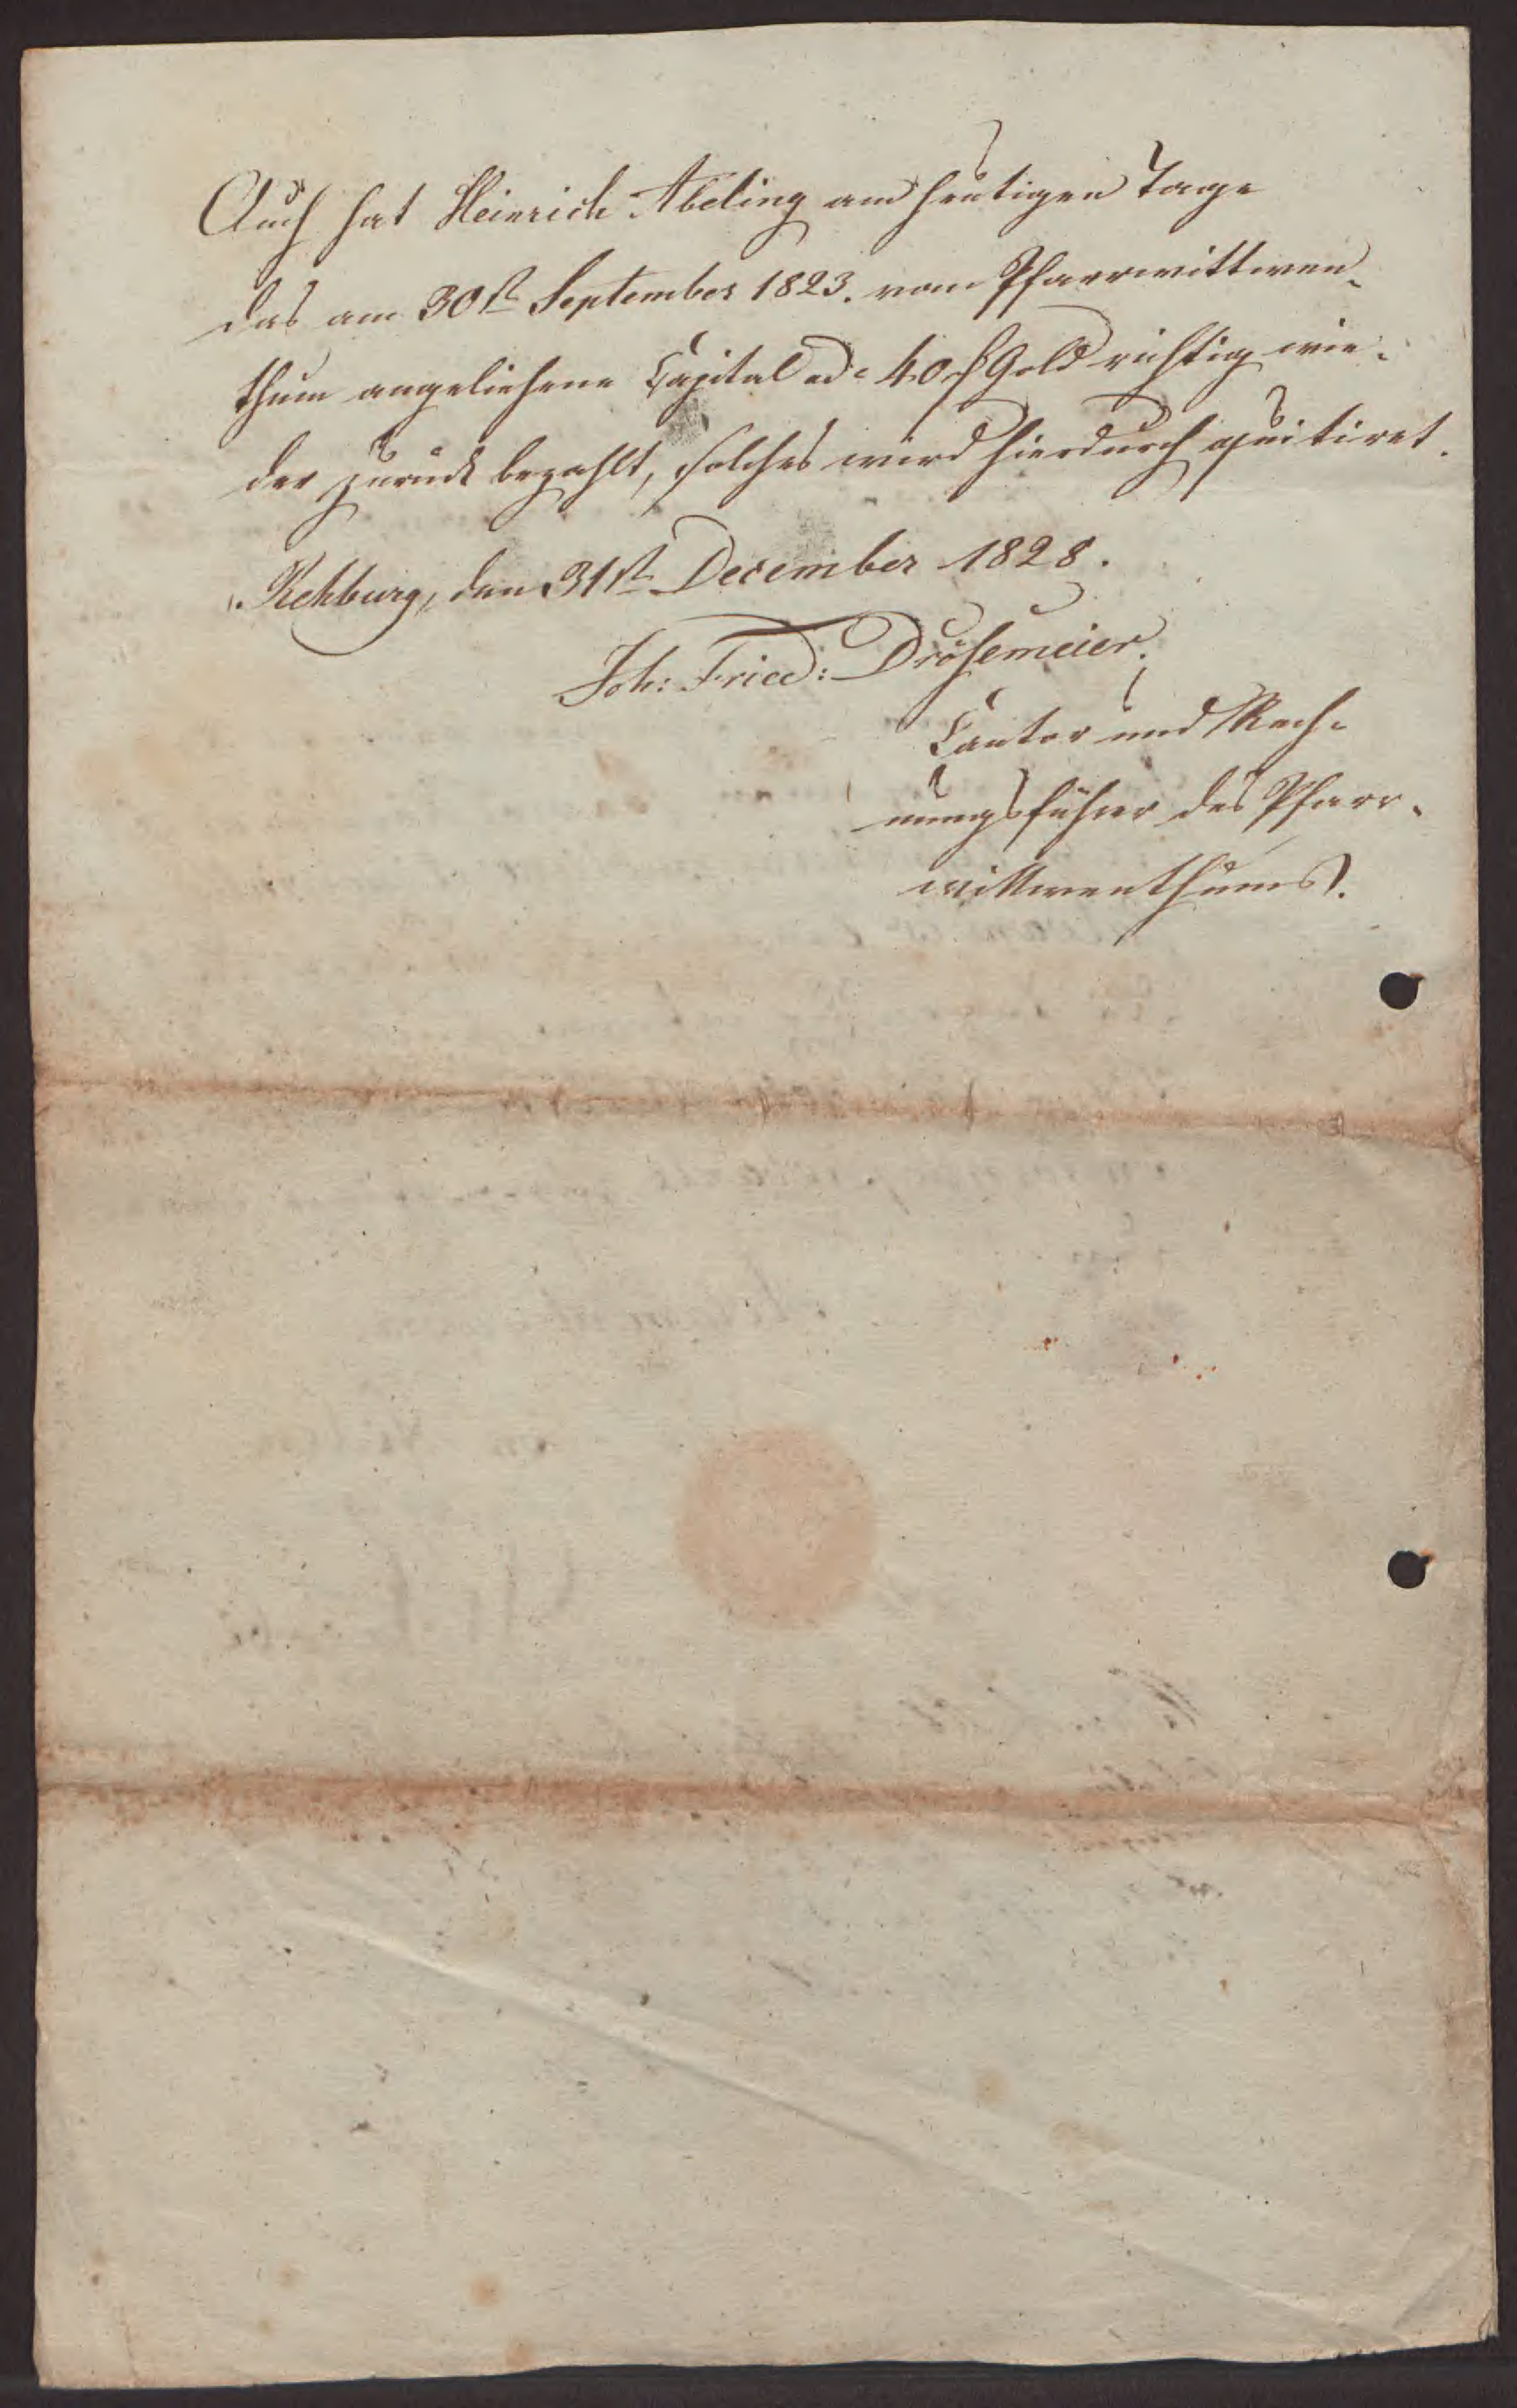 Auch hat Heinrich Abeling am heutigen Tage
das am 30st September 1823. vom Pfarrwittwen-
thum angeliehene Capital ad 40 f Gold richtig wie-
der zurück bezahlt, solches wird hierdurch quitiret.
Rehburg, den 31st December 1828.
Joh: Fried: Drösemeier.
Cantor und Rech-
nungsführer des Pfarr-
wittwenthums.